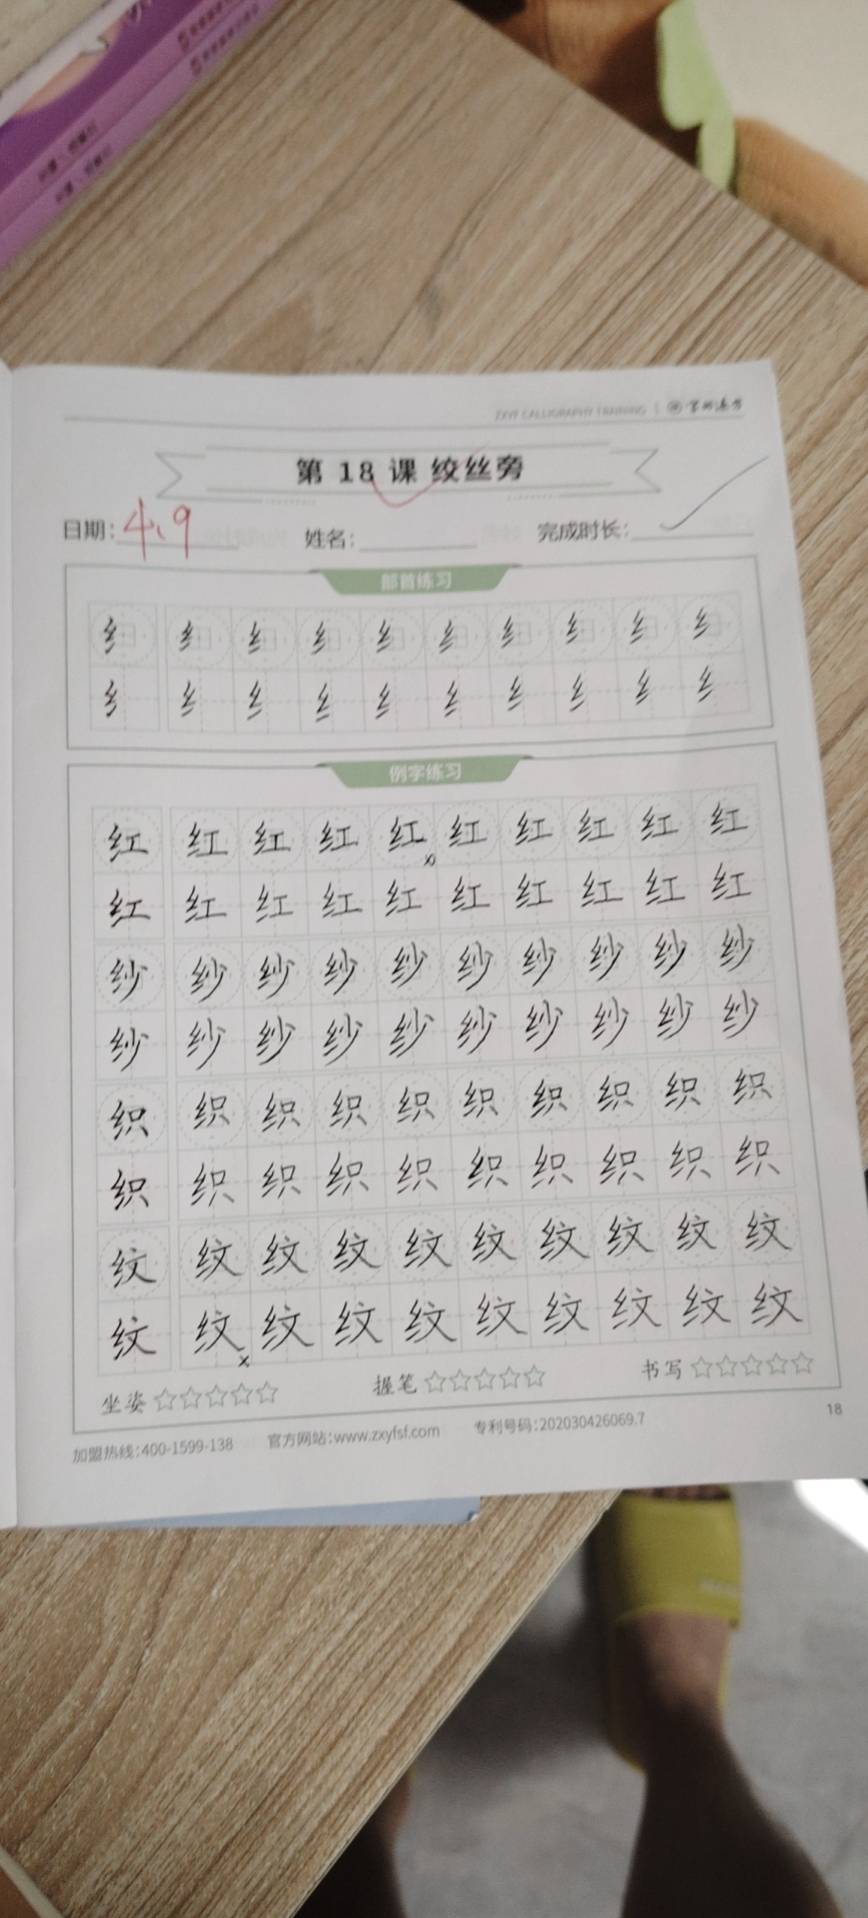 ZXYF CALLIGRAPHY TRAINING
第 18 课 绞丝旁
日期: 4.9 姓名: 完成时长:
部首练习
纟 纟 纟 纟 纟 纟 纟 纟 纟 纟
纟 纟 纟 纟 纟 纟 纟 纟 纟 纟
例字练习
红 红 红 红 红 红 红 红 红 红
红 红 红 红 红 红 红 红 红 红
纱 纱 纱 纱 纱 纱 纱 纱 纱 纱
纱 纱 纱 纱 纱 纱 纱 纱 纱 纱
织 织 织 织 织 织 织 织 织 织
织 织 织 织 织 织 织 织 织 织
纹 纹 纹 纹 纹 纹 纹 纹 纹 纹
纹 纹 纹 纹 纹 纹 纹 纹 纹 纹
坐姿 ☆☆☆☆☆ 握笔 ☆☆☆☆☆ 书写 ☆☆☆☆☆
加盟热线:400-1599-138 官方网站:www.zxyfsf.com 专利号码:202030426069.7
18